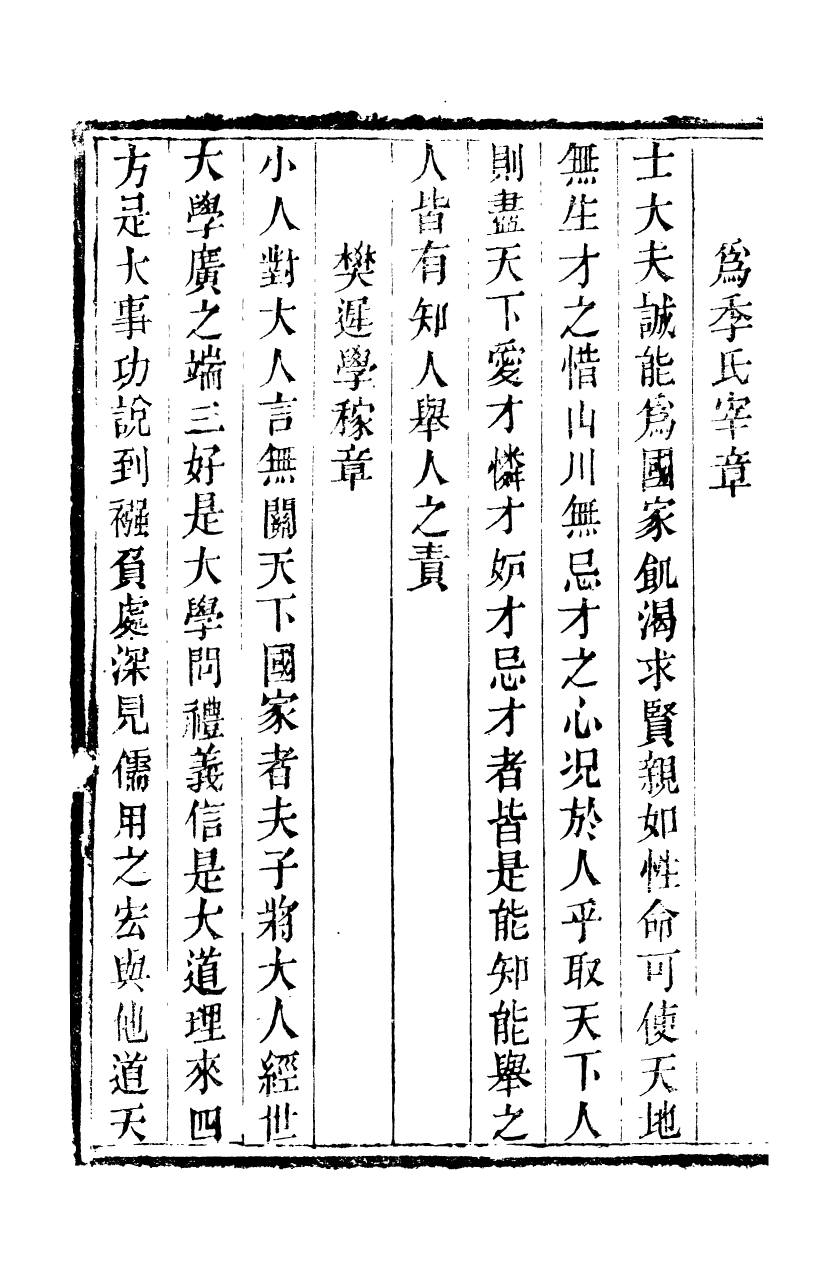 爲季氏宰章
士大夫誠能爲國家飢渴求賢親如性命可使天地
無生才之惜山川無忌才之心况於人乎取天下人
則盡天下愛才憐才妬才忌才者皆是能知能舉之
人皆有知人舉人之責
樊遲學稼章
小人對大人言無關天下國家者夫子將大人經世
大學廣之端三好是大學問禮義信是大道理來四
方是大事功說到襁負處深見儒用之宏與他道天